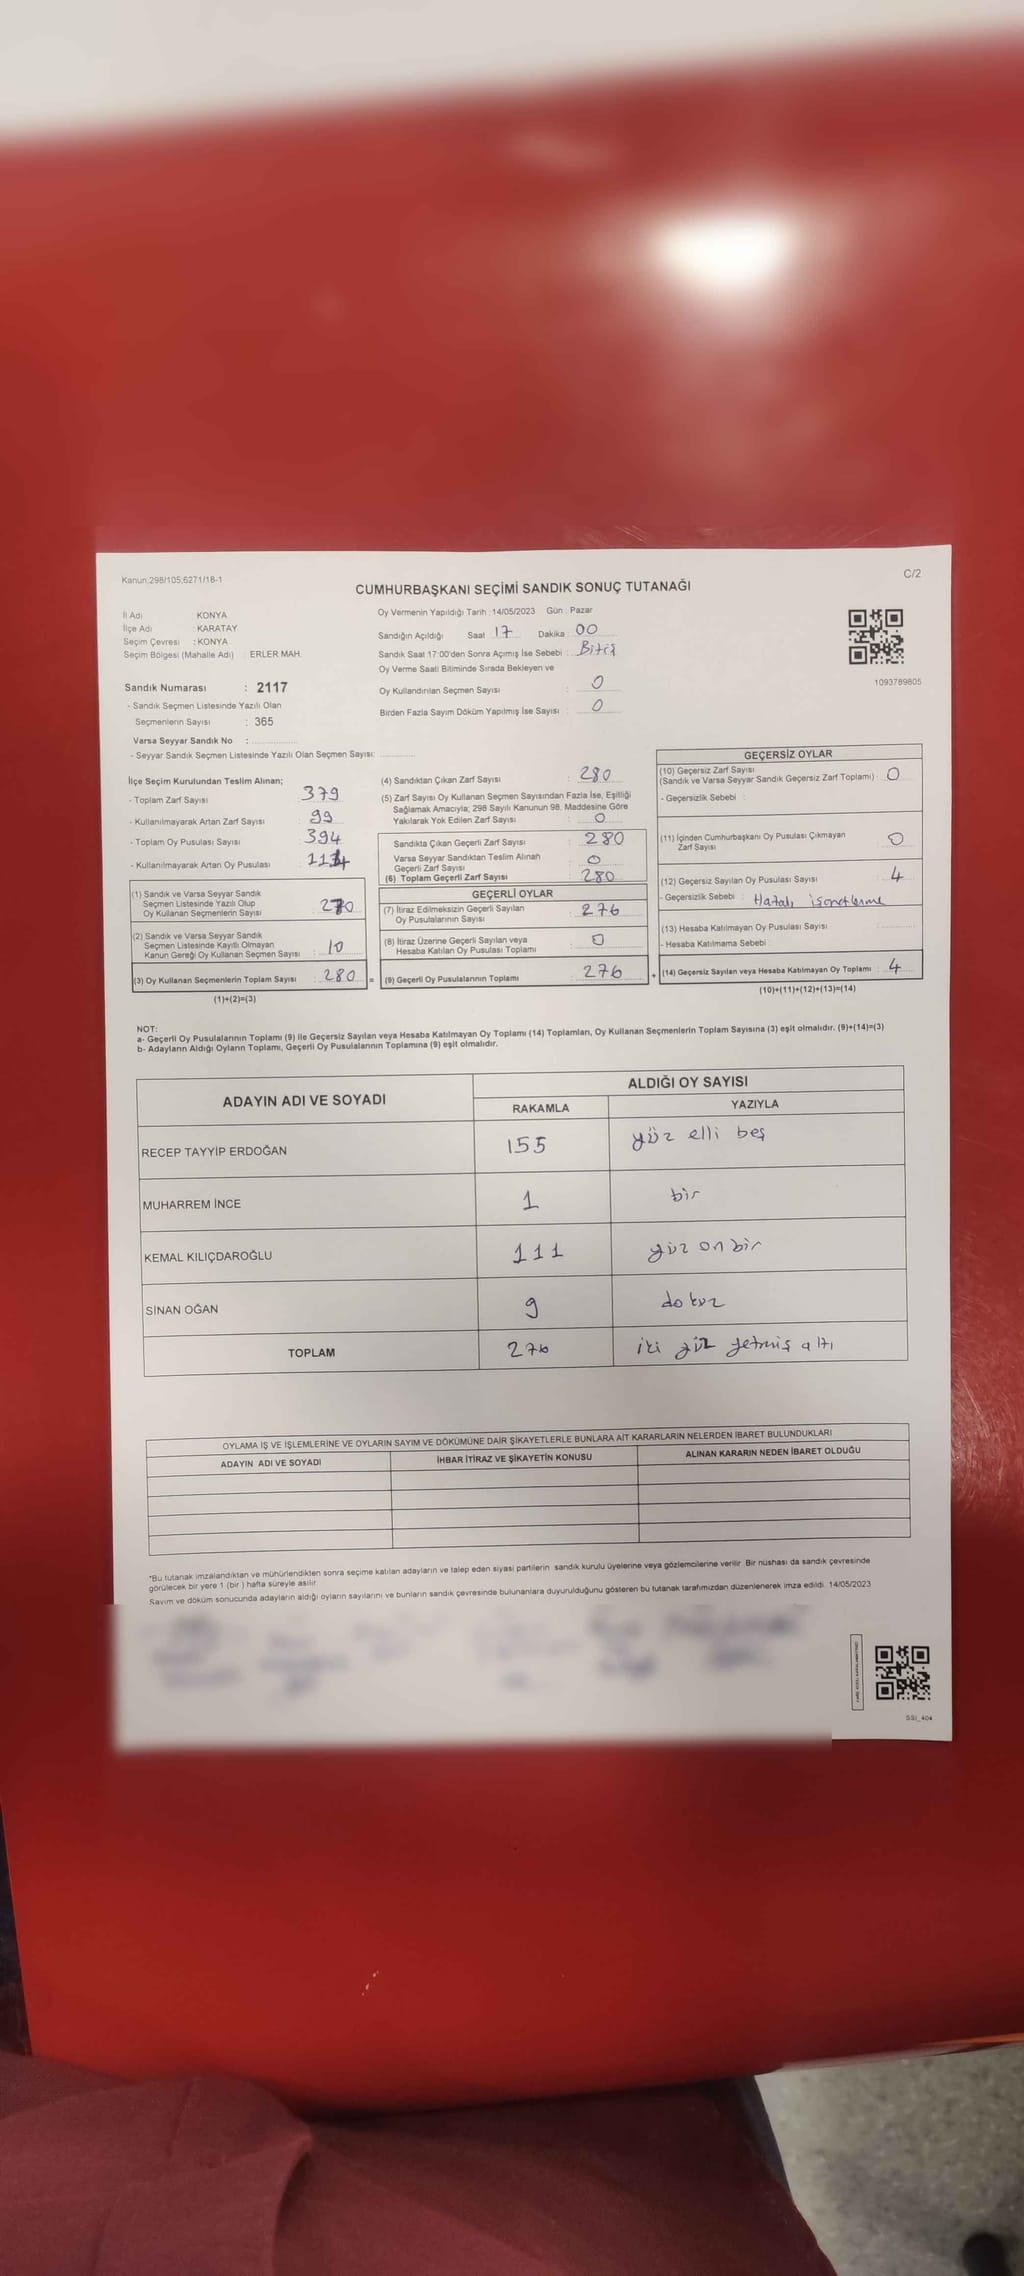 Kanun.298/105;6271/18-1
C/2
CUMHURBAŞKANI SEÇİMİ SANDIK SONUÇ TUTANAĞI
İl Adı KONYA
İlçe Adı : KARATAY
Seçim Çevresi : KONYA
Seçim Bölgesi (Mahalle Adı) : ERLER MAH.
Oy Vermenin Yapıldığı Tarih :14/05/2023 Gün : Pazar
Sandığın Açıldığı Saat 17 Dakika : 00
Sandık Saat 17:00'den Sonra Açımış İse Sebebi : Bitiş
Oy Verme Saati Bitiminde Sırada Bekleyen ve
Oy Kullandırılan Seçmen Sayısı : 0
Birden Fazla Sayım Döküm Yapılmış İse Sayısı : 0
1093789805
Sandık Numarası : 2117
- Sandık Seçmen Listesinde Yazılı Olan
Seçmenlerin Sayısı : 365
Varsa Seyyar Sandık No :
- Seyyar Sandık Seçmen Listesinde Yazılı Olan Seçmen Sayısı:
İlçe Seçim Kurulundan Teslim Alınan;
- Toplam Zarf Sayısı : 379
- Kullanılmayarak Artan Zarf Sayısı : 99
- Toplam Oy Pusulası Sayısı : 394
- Kullanılmayarak Artan Oy Pusulası :
(1) Sandık ve Varsa Seyyar Sandık
Seçmen Listesinde Yazılı Olup
Oy Kullanan Seçmenlerin Sayısı : 270
(2) Sandık ve Varsa Seyyar Sandık
Seçmen Listesinde Kayıtlı Olmayan
Kanun Gereği Oy Kullanan Seçmen Sayısı : 10
(3) Oy Kullanan Seçmenlerin Toplam Sayısı : 280 =
(1)+(2)=(3)
(4) Sandıktan Çıkan Zarf Sayısı : 280
(5) Zarf Sayısı Oy Kullanan Seçmen Sayısından Fazla İse, Eşitliği
Sağlamak Amacıyla; 298 Sayılı Kanunun 98. Maddesine Göre
Yakılarak Yok Edilen Zarf Sayısı : 0
Sandıkta Çıkan Geçerli Zarf Sayısı : 280
Varsa Seyyar Sandıktan Teslim Alınan
Geçerli Zarf Sayısı : 0
(6) Toplam Geçerli Zarf Sayısı : 280
GEÇERLİ OYLAR
(7) İtiraz Edilmeksizin Geçerli Sayılan
Oy Pusulalarının Sayısı : 276
(8) İtiraz Üzerine Geçerli Sayılan veya
Hesaba Katılan Oy Pusulası Toplamı : 0
(9) Geçerli Oy Pusulalarının Toplamı : 276 +
GEÇERSİZ OYLAR
(10) Geçersiz Zarf Sayısı
(Sandık ve Varsa Seyyar Sandık Geçersiz Zarf Toplamı) : 0
- Geçersizlik Sebebi :
(11) İçinden Cumhurbaşkanı Oy Pusulası Çıkmayan
Zarf Sayısı : 0
(12) Geçersiz Sayılan Oy Pusulası Sayısı : 4
- Geçersizlik Sebebi : Hatalı işaretleme
(13) Hesaba Katılmayan Oy Pusulası Sayısı :
- Hesaba Katılmama Sebebi :
(14) Geçersiz Sayılan veya Hesaba Katılmayan Oy Toplamı : 4
(10)+(11)+(12)+(13)=(14)
NOT:
a- Geçerli Oy Pusulalarının Toplamı (9) ile Geçersiz Sayılan veya Hesaba Katılmayan Oy Toplamı (14) Toplamları, Oy Kullanan Seçmenlerin Toplam Sayısına (3) eşit olmalıdır. (9)+(14)=(3)
b- Adayların Aldığı Oyların Toplamı, Geçerli Oy Pusulalarının Toplamına (9) eşit olmalıdır.
ADAYIN ADI VE SOYADI
ALDIĞI OY SAYISI
RAKAMLA YAZIYLA
RECEP TAYYİP ERDOĞAN 155 yüz elli beş
MUHARREM İNCE 1 bir
KEMAL KILIÇDAROĞLU 111 yüz on bir
SİNAN OĞAN 9 dokuz
TOPLAM 276 iki yüz yetmiş altı
OYLAMA İŞ VE İŞLEMLERİNE VE OYLARIN SAYIM VE DÖKÜMÜNE DAİR ŞİKAYETLERLE BUNLARA AİT KARARLARIN NELERDEN İBARET BULUNDUKLARI
ADAYIN ADI VE SOYADI İHBAR İTİRAZ VE ŞİKAYETİN KONUSU ALINAN KARARIN NEDEN İBARET OLDUĞU
*Bu tutanak imzalandıktan ve mühürlendikten sonra seçime katılan adayların ve talep eden siyasi partilerin sandık kurulu üyelerine veya gözlemcilerine verilir. Bir nüshası da sandık çevresinde
görülecek bir yere 1 (bir) hafta süreyle asılır.
Sayım ve döküm sonucunda adayların aldığı oyların sayılarını ve bunların sandık çevresinde bulunanlara duyurulduğunu gösteren bu tutanak tarafımızdan düzenlenerek imza edildi. 14/05/2023
SSI_404